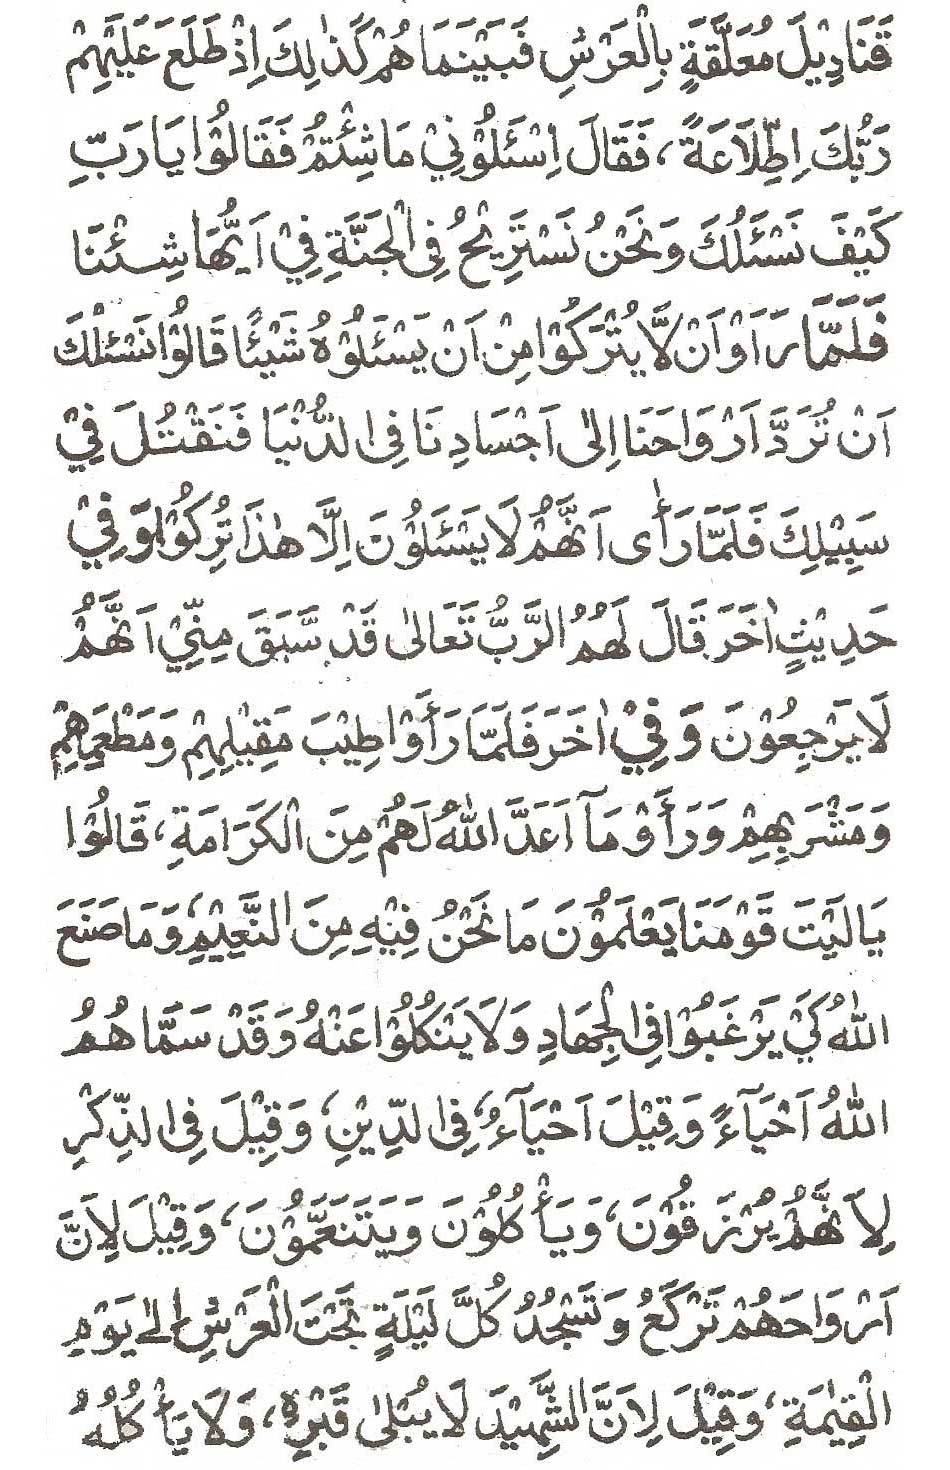 قَنَادِيْلَ مُعَلَّقَةٍ بِالْعَرْشِ فَبَيْنَمَا هُمْ كَذٰلِكَ اِذْ طَلَعَ عَلَيْهِمْ
رَبُّكَ اِطِّلَاعَةً، فَقَالَ اِسْئَلُوْنِيْ مَا شِئْتُمْ فَقَالُوْا يَا رَبِّ
كَيْفَ نَسْئَلُكَ وَنَحْنُ نَسْتَرِيْحُ فِى الْجَنَّةِ فِيْ اَيُّهَا شِئْنَا
فَلَمَّا رَاَوْ اَنْ لَّا يُتْرَكُوْا مِنْ اَنْ يَسْئَلُوْهُ شَيْئًا قَالُوْا نَسْئَلُكَ
اَنْ تُرَدَّ اَرْوَاحَنَا اِلٰى اَجْسَادِنَا فِى الدُّنْيَا فَنَقْتُلَ فِيْ
سَبِيْلِكَ فَلَمَّا رَأٰى اَنَّهُمْ لَا يَسْئَلُوْنَ اِلَّا هٰذَا تُرِكُوْا وَفِيْ
حَدِيْثٍ اٰخَرَ قَالَ لَهُمُ الرَّبُّ تَعَالٰى قَدْ سَّبَقَ مِنِّيْ اَنَّهُمْ
لَا يَرْجِعُوْنَ وَفِيْ اٰخَرَ فَلَمَّا رَأَوْا طِيْبَ مَقِيْلِهِمْ وَمَطْعَمِهِمْ
وَمَشْرَبِهِمْ وَرَأَوْ مَآ اَعَدَّ اللّٰهُ لَهُمْ مِنَ الْكَرَامَةِ، قَالُوْا
يَا لَيْتَ قَوْمَنَا يَعْلَمُوْنَ مَا نَحْنُ فِيْهِ مِنَ النَّعِيْمِ، وَمَا صَنَعَ
اللّٰهُ كَيْ يَرْغَبُوْا فِى الْجِهَادِ وَلَا يَنْكُلُوْا عَنْهُ وَقَدْ سَمَّا هُمُ
اللّٰهُ اَحْيَآءً وَقِيْلَ اَحْيَآءُ، فِى الدِّيْنِ، وَقِيْلَ فِى الذِّكْرِ
لِاَنَّهُمْ يُرْزَقُوْنَ، وَيَأْكُلُوْنَ وَيَتَنَعَّمُوْنَ، وَقِيْلَ لِاَنَّ
اَرْوَاحَهُمْ تَرْكَعُ وَتَسْجُدُ كُلَّ لَيْلَةٍ تَحْتَ الْعَرْشِ اِلٰى يَوْمِ
الْقِيٰمَةِ، وَقِيْلَ لِاَنَّ الشَّهِيْدَ لَا يُبْلٰى قَبْرِهِ، وَلَا يَأْكُلُهُ